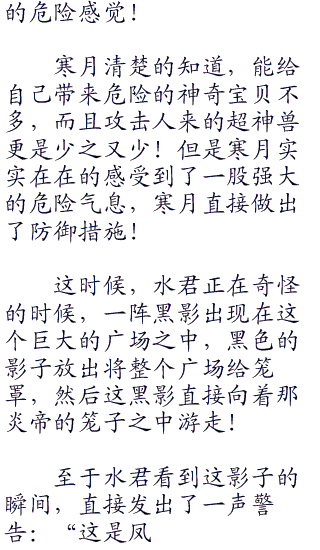 的危险感觉！
寒月清楚的知道，能给
自己带来危险的神奇宝贝不
多，而且攻击人来的超神兽
更是少之又少！但是寒月实
实在在的感受到了一股强大
的危险气息，寒月直接做出
了防御措施！
这时候，水君正在奇怪
的时候，一阵黑影出现在这
个巨大的广场之中，黑色的
影子放出将整个广场给笼
罩，然后这黑影直接向着那
炎帝的笼子之中游走！
至于水君看到这影子的
瞬间，直接发出了一声警
告：“这是凤